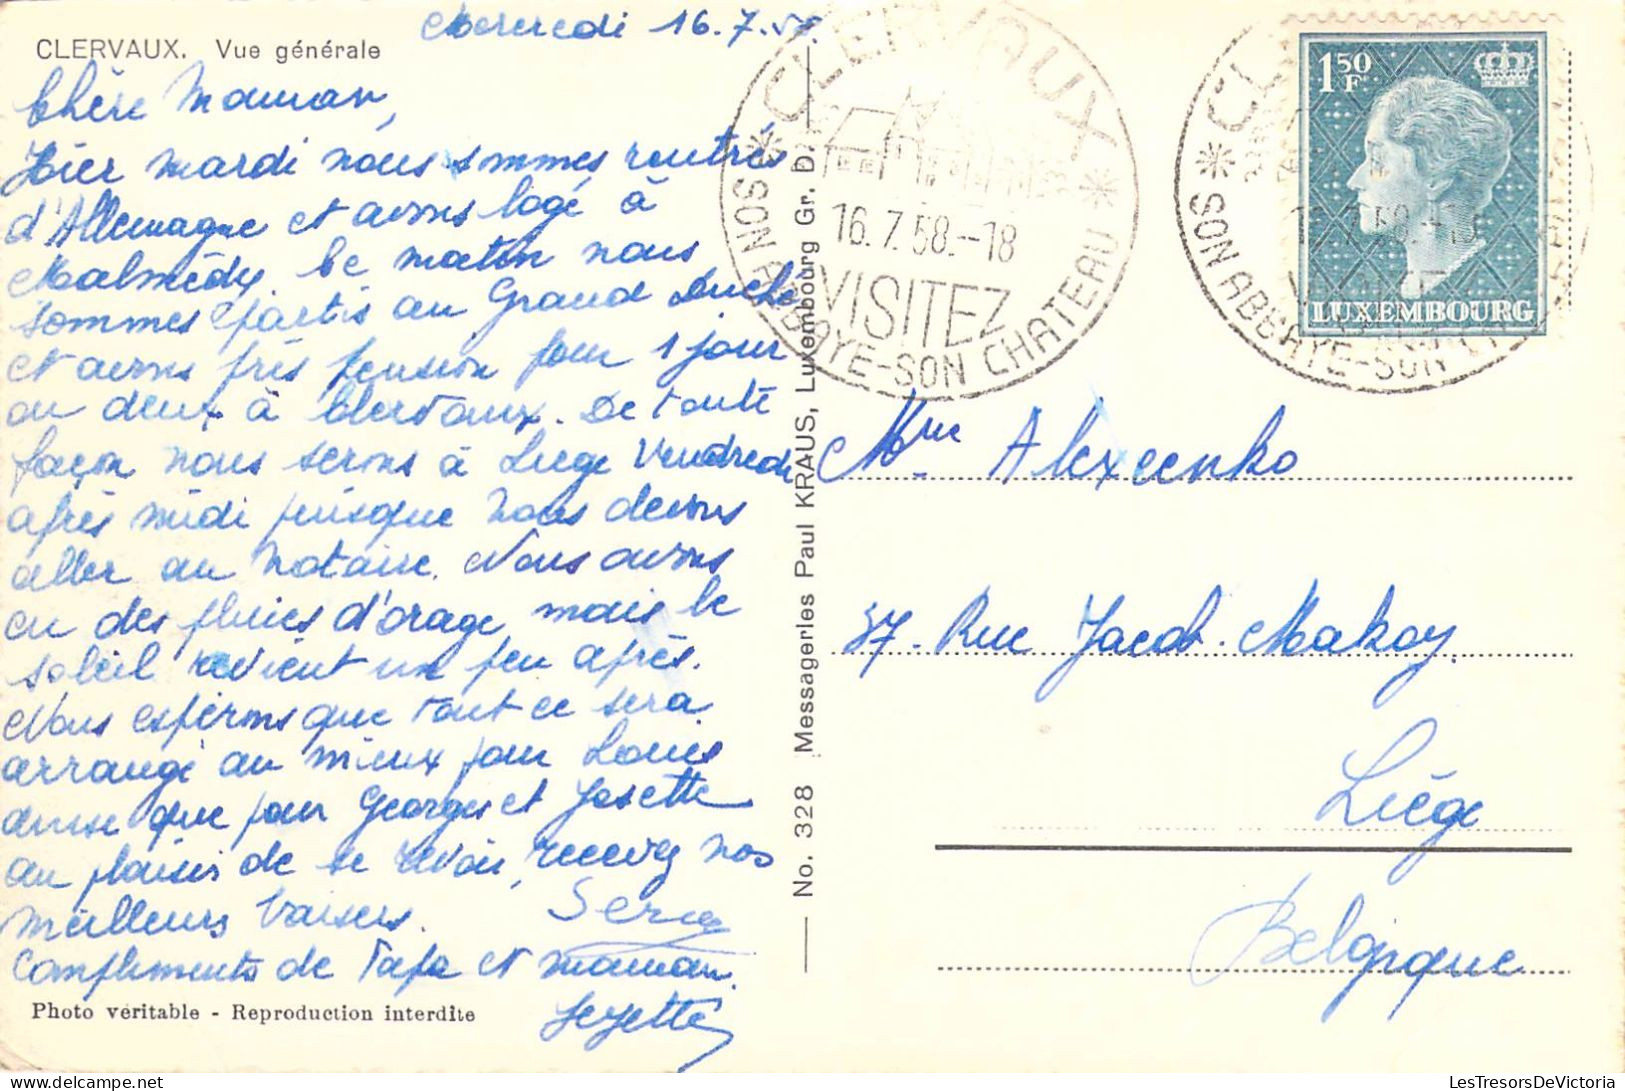 CLERVAUX. Vue générale
Mercredi 16.7.58.
Chère Maman,
Hier mardi nous sommes rentrés
d'Allemagne et avons logé à
Malmédy. Ce matin nous
sommes partis au Grand Duché
et avons pris pension pour 1 jour
ou deux à Clervaux. De toute
façon nous serons à Liège Vendredi
après midi puisque nous devons
aller au notaire. Nous avons
eu des pluies d'orage mais le
soleil revient un peu après.
Nous espérons que tout ce sera
arrangé au mieux pour Louis
ainsi que pour Georges et Josette
au plaisir de se revoir, recevez nos
meilleurs baisers. Serge
Compliments de Papa et maman.
Photo véritable - Reproduction interdite
No. 328 Messageries Paul KRAUS, Luxembourg Gr. D.
* CLERVAUX *
16.7.58.-18
VISITEZ
SON ABBAYE-SON CHATEAU
1,50 F
LUXEMBOURG
* CL
SON ABBAYE-SON
Mme Alexeenko
37. Rue Jacob. Makoy.
Liége
Belgique
LesTresorsDeVictoria